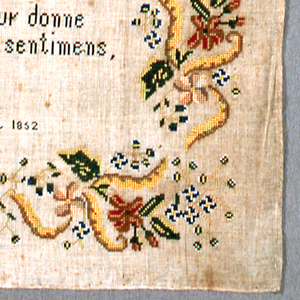 ur donne
sentimens,
1862